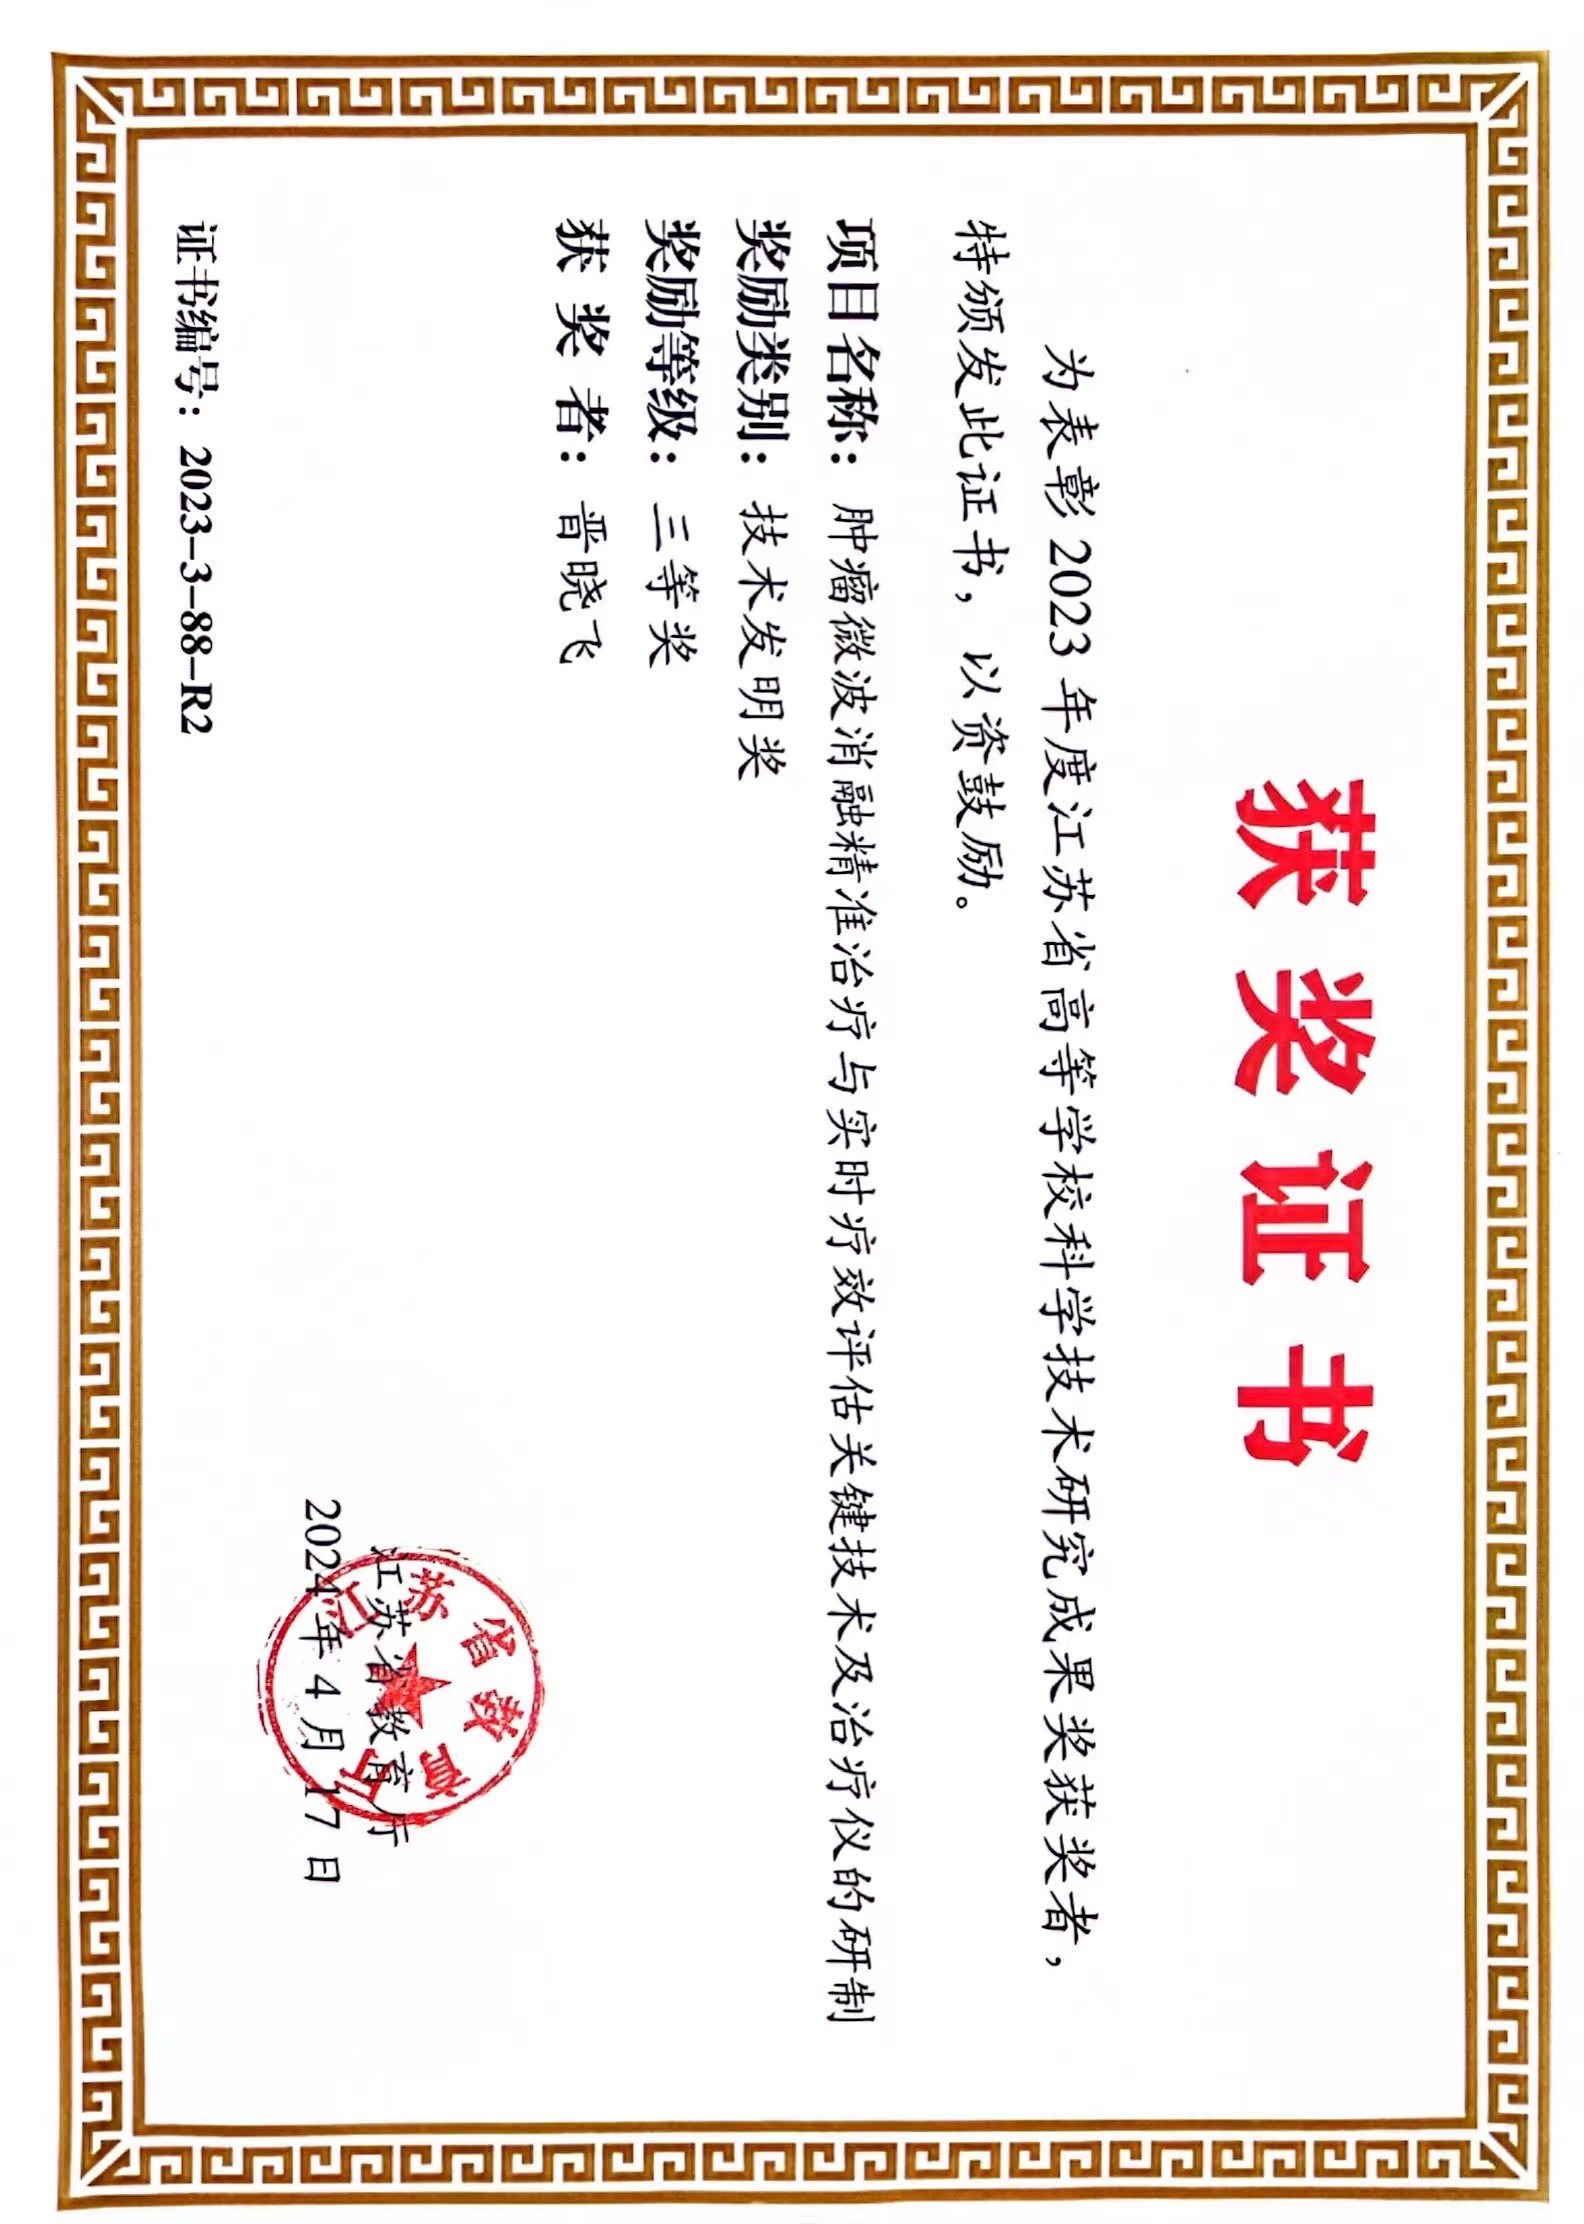 获奖证书
为表彰2023年度江苏省高等学校科学技术研究成果奖获奖者，
特颁发此证书，以资鼓励。
项目名称：肿瘤微波消融精准治疗与实时疗效评估关键技术及治疗仪的研制
奖励类别：技术发明奖
奖励等级：三等奖
获奖者：晋晓飞
江苏省教育厅
江苏省教育厅
2024年4月17日
证书编号：2023-3-88-R2